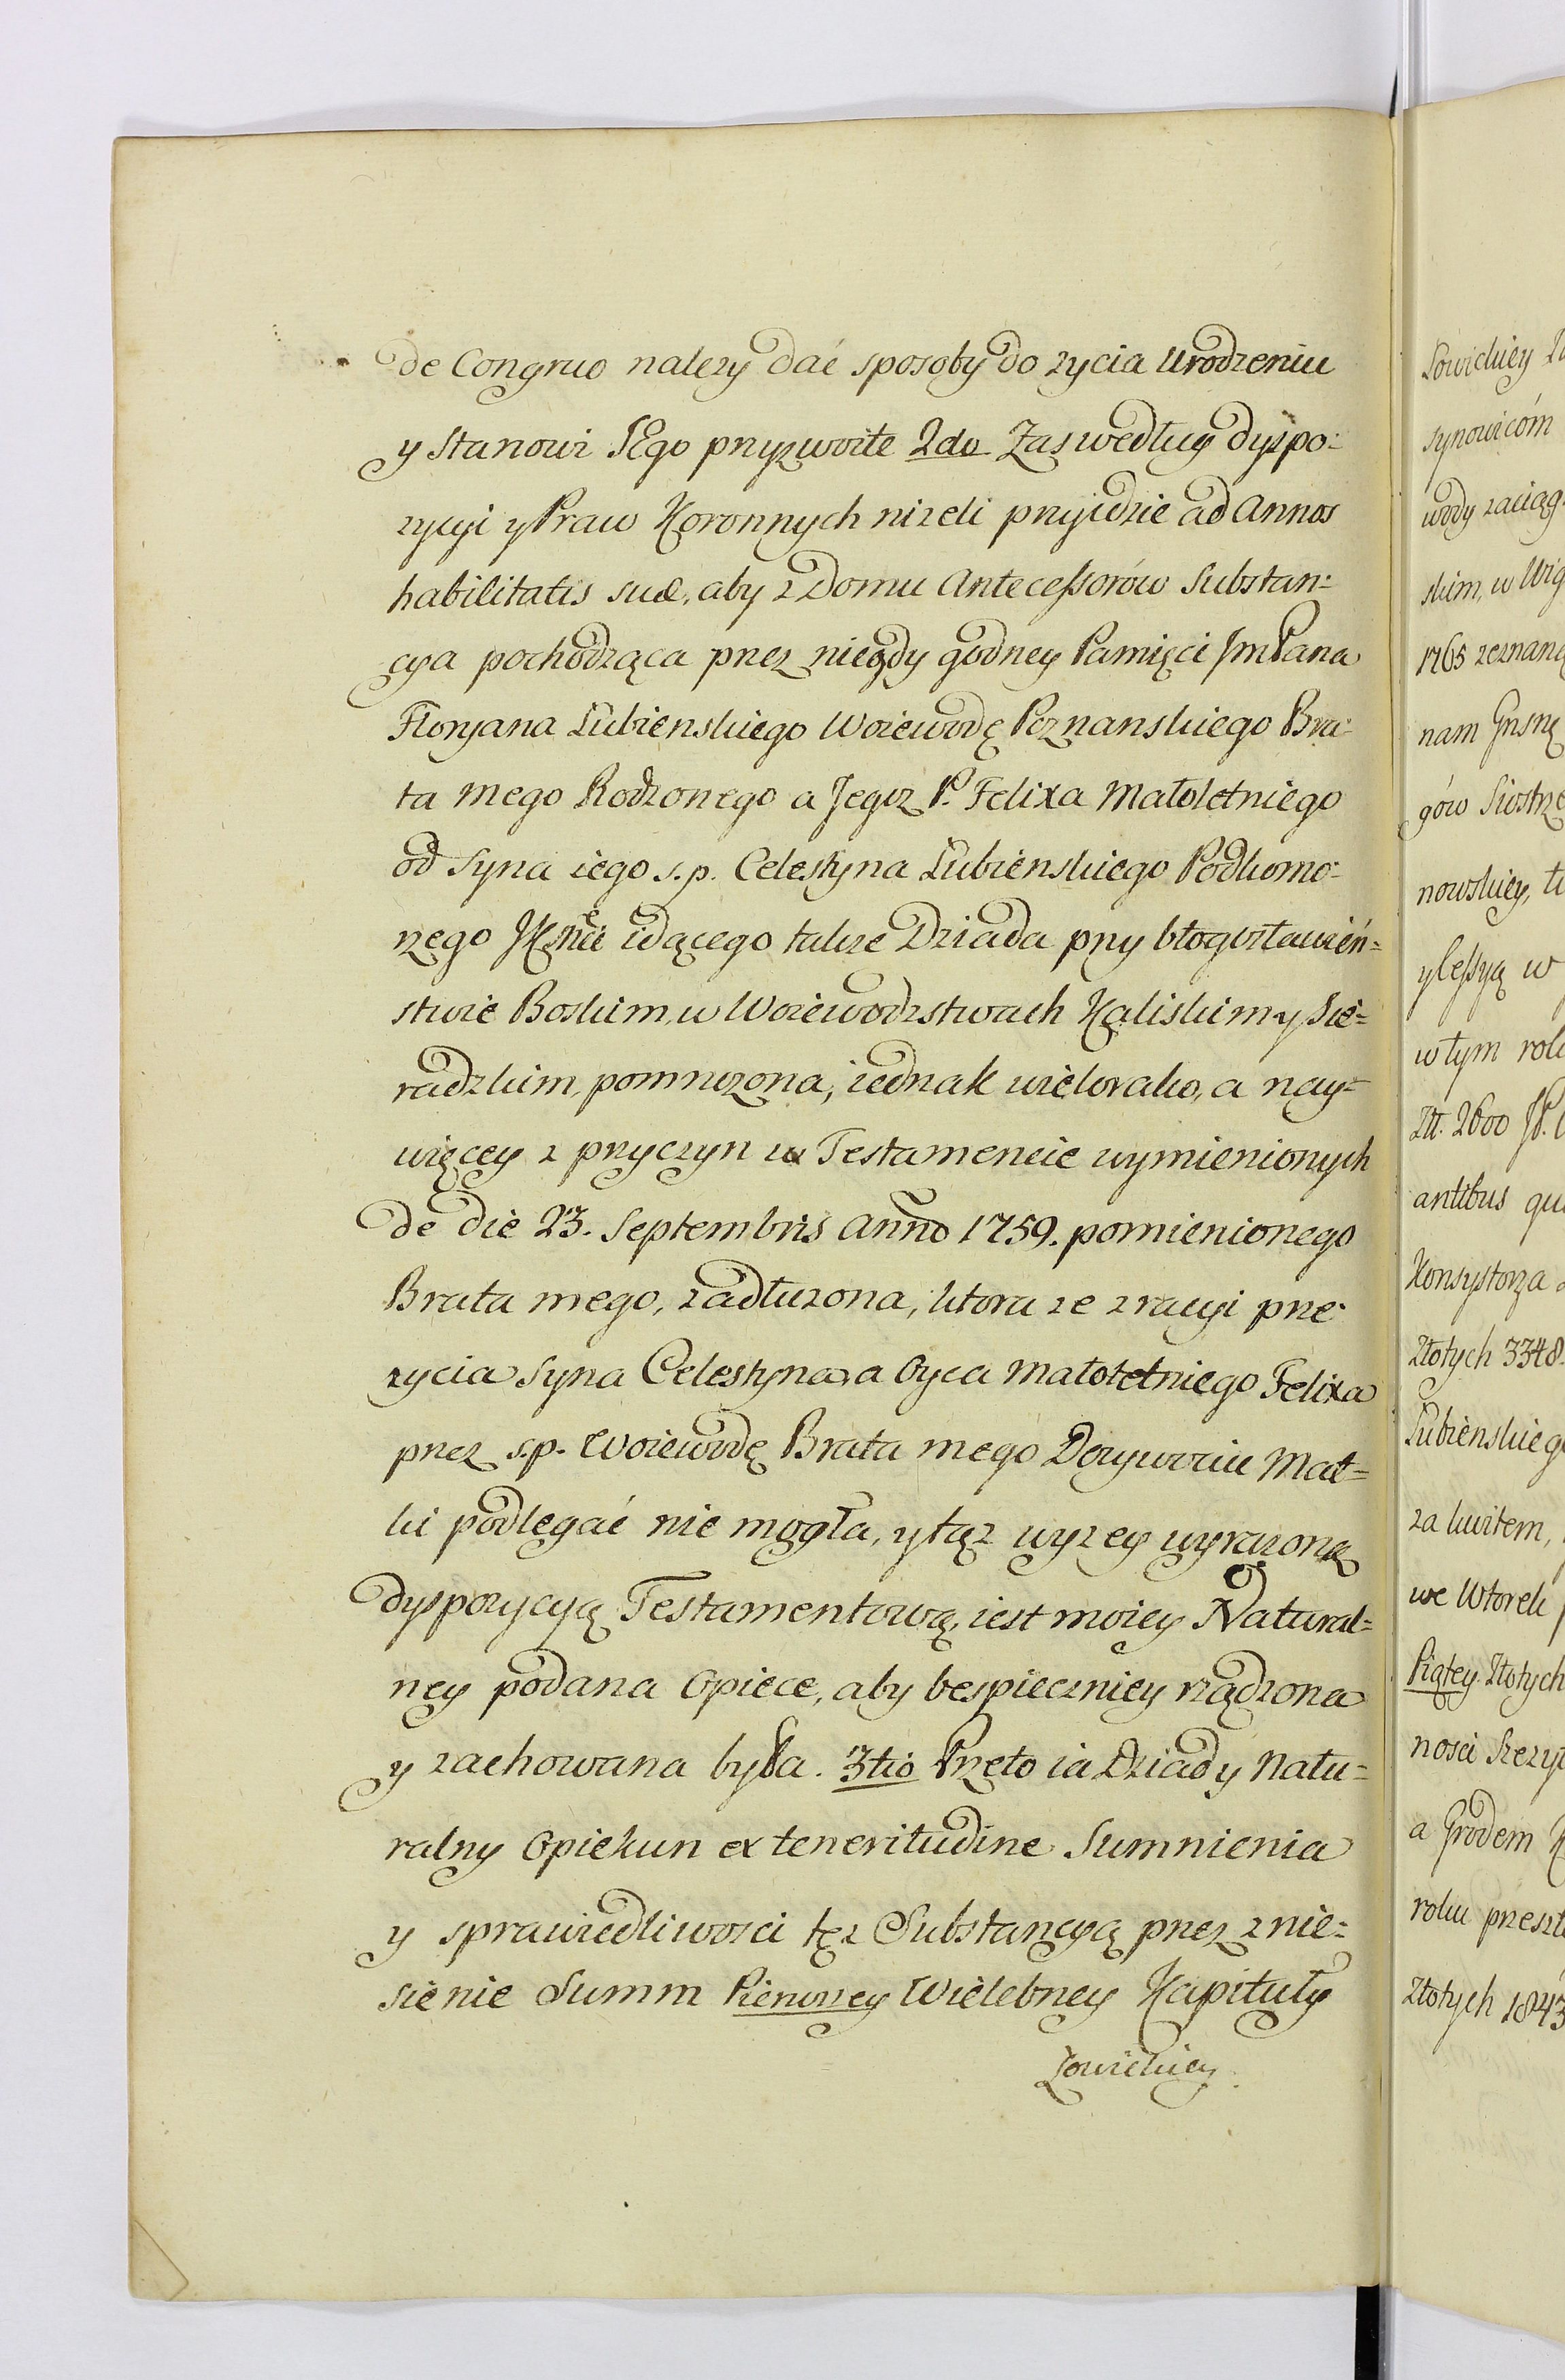 de Congruo nalezy dać sposoby do zycia Urodzeniu
y Stanowi JEgo przyzwoite 2do Zas według dyspo:
zycyi y Praw Koronnych nizeli przyidzie ad Annos
habilitatis suæ, aby z Domu Antecessorów Substan:
cya pochodząca przez niegdy godney Pamięci JmPana
Floryana Łubienskiego Woiewodę Poznanskiego Bra:
ta mego Rodzonego a Jegoz P. Felixa Małoletniego
od Syna iego s.p. Celestyna Łubienskiego Podkomo:
rzego idącego takze Dziada przy błogosławień=
stwie Boskim, w Woiewodzstwach Kaliskim y Sie=
radzkim, pomnozona, iednak wielorako, a nay=
więcey z przyczyn w Testamencie wymienionych
de die 23. Septembris Anno 1759. pomienionego
Brata mego, zadłuzona, ktora ze z racyi prze:
zycia Syna Celestyna, a Oyca Małoletniego Felixa
przez s.p. Woiewodę Brata mego Dozywociu Mat=
ki podlegać nie mogła, y tąz wyzey wyrazoną
dyspozycyą Testamentową, iest moiey Natural=
ney podana Opiece, aby bespieczniey rządzona
y zachowana była. 3tio Przeto ia Dziad y Natu=
ralny Opiekun ex teneritudine Sumnienia
y sprawiedliwosci tęz Substancyą przez znie=
sienie Summ Pierwszey Wielebney Kapituły
Łowickiey
Łowickiey
synowicóm
wody zaciąg
skim, w
1765 zeznaną
nam
gów Siostrze
nowskiey,
y Cessyą w
w tym rok
Złt. 2600
antibus
Konsystorza
Złotych 3348.
Łubienskiego
za kwitem,
we Wtorek
Piątey Złotych
nosci
a Grodem
roku przeszł
Złotych 1843